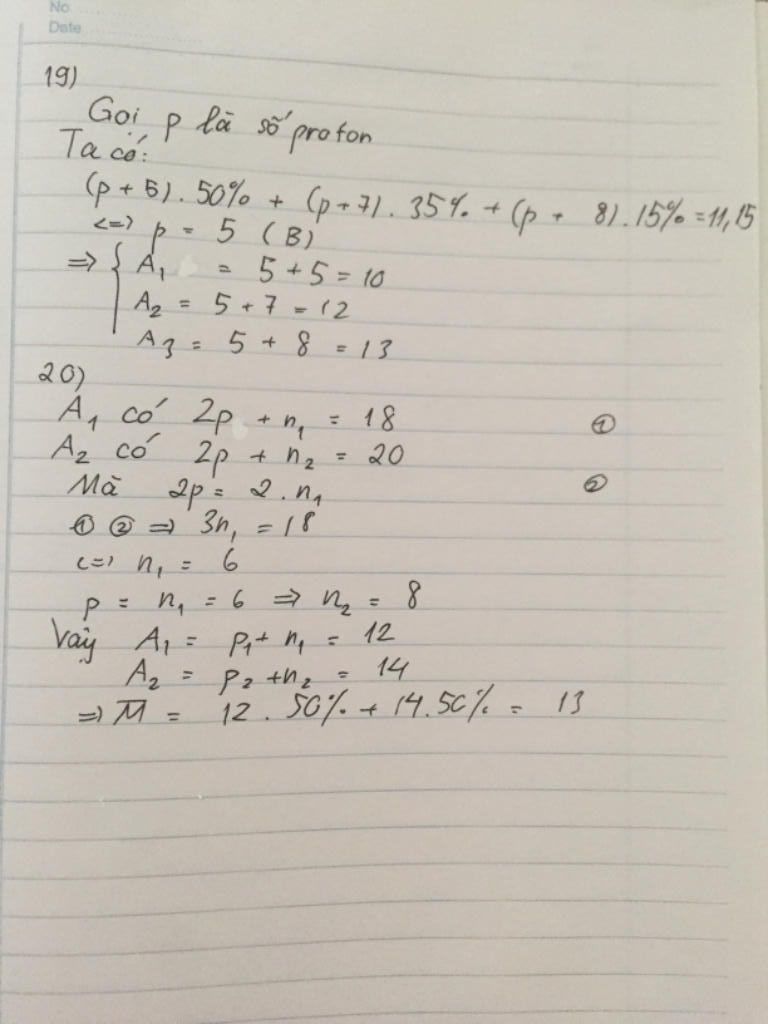 No
Date
19)
Gọi p là số proton
Ta có:
(p + 5). 50% + (p+7). 35% + (p + 8). 15% = 11,15
<=> p = 5 (B)
=> { A₁ = 5 + 5 = 10
A₂ = 5 + 7 = 12
A₃ = 5 + 8 = 13
20)
A₁ có 2p + n₁ = 18 ①
A₂ có 2p + n₂ = 20
Mà 2p = 2. n₁ ②
① ② => 3n₁ = 18
<=> n₁ = 6
p = n₁ = 6 => n₂ = 8
Vậy A₁ = p₁+ n₁ = 12
A₂ = p₂ +n₂ = 14
=> M̅ = 12. 50% + 14.50% = 13